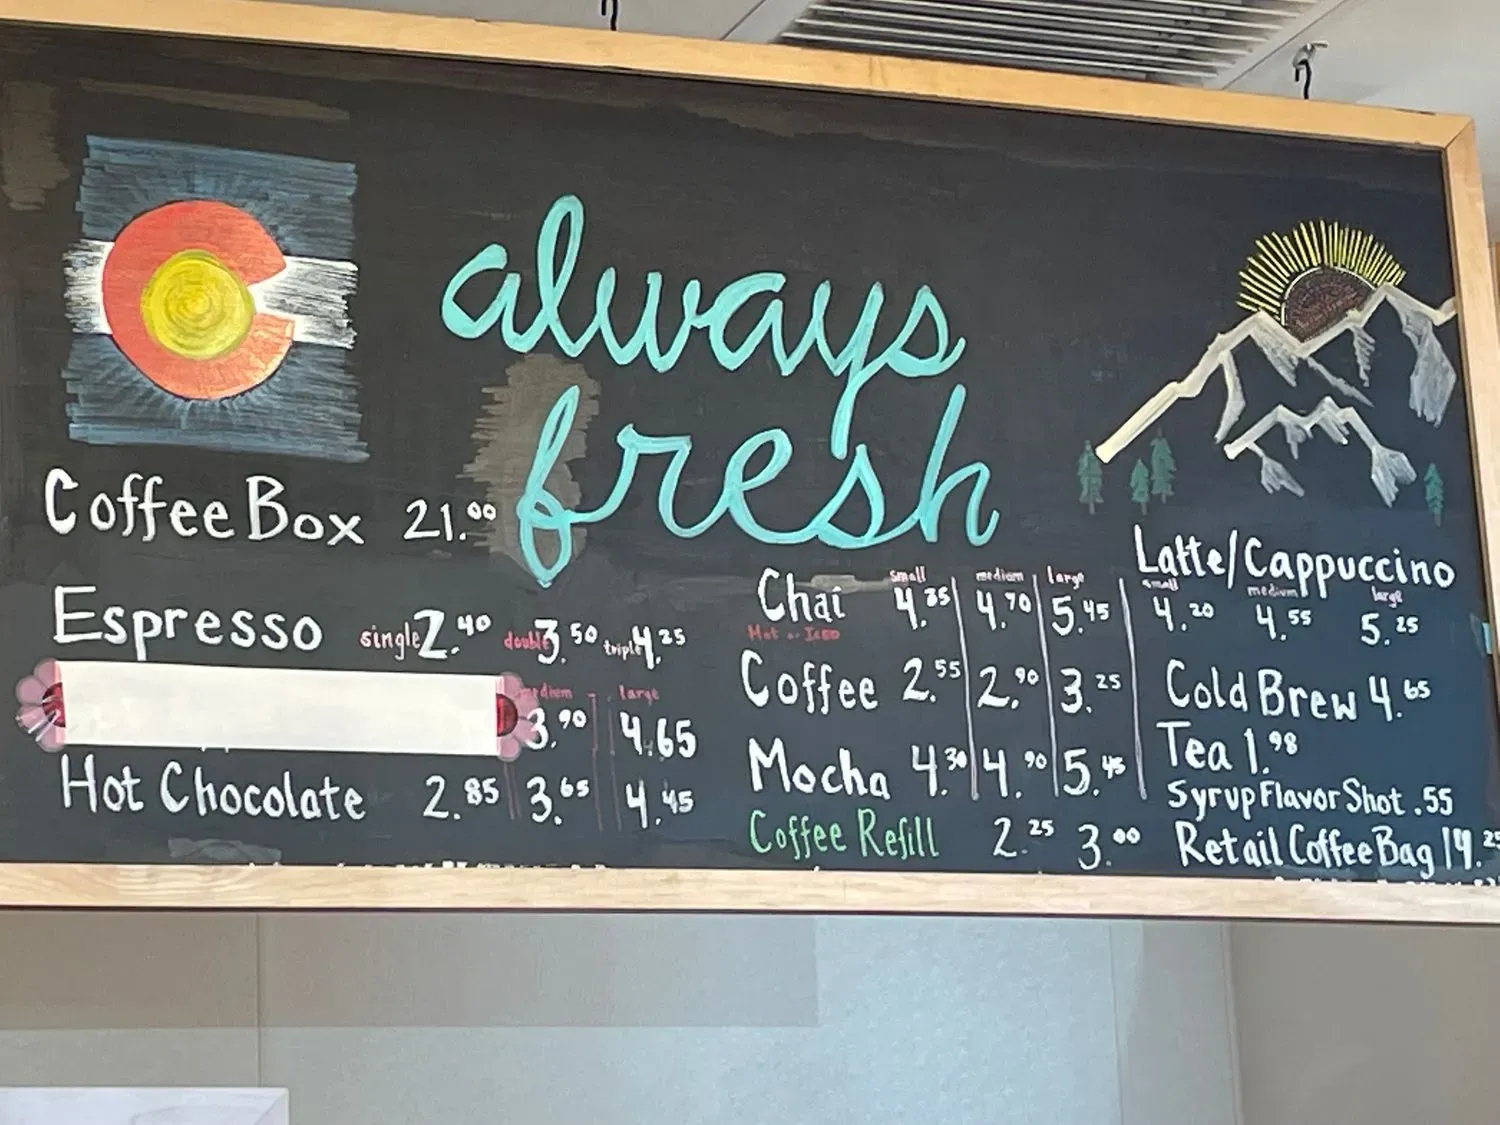 always
fresh
Coffee Box 21.00
Espresso single 2.40 double 3.50 triple 4.25
medium large
3.90 4.65
Hot Chocolate 2.85 3.65 4.45
small medium large
Chai 4.35 4.70 5.45
Hot or Iced
Coffee 2.55 2.90 3.25
Mocha 4.30 4.90 5.45
Coffee Refill 2.25 3.00
Latte/Cappuccino
small medium large
4.20 4.55 5.25
Cold Brew 4.65
Tea 1.98
Syrup Flavor Shot .55
Retail Coffee Bag 14.25